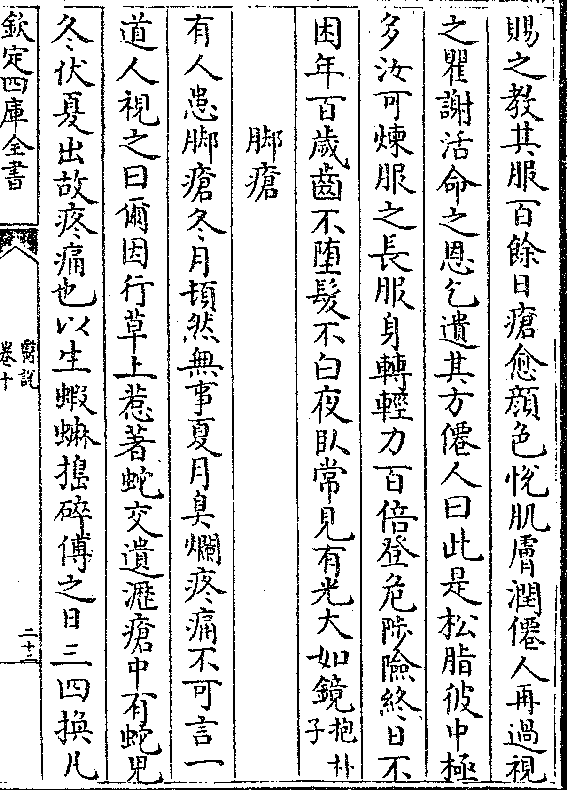 賜之教其服百餘日瘡愈顔色恱肌膚潤僊人再過視
之瞿謝活命之恩乞遺其方僊人曰此是松脂彼中極
多汝可煉服之長服身轉輕力百倍登危陟險終日不
困年百歲齒不墮髮不白夜臥常見有光大如鏡抱朴子
脚瘡
有人患脚瘡冬月頓然無事夏月臭爛疼痛不可言一
道人視之曰爾因行草上惹著蛇交遺瀝瘡中有蛇兒
冬伏夏出故疼痛也以生蝦蟆搗碎傅之日三四換凡
欽定四庫全書
醫說
卷十
二十二